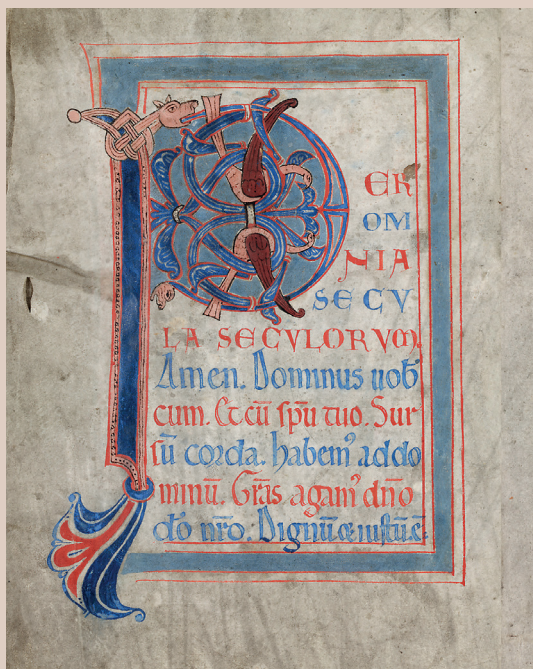 P ER
OM
NIA
SECU
LA SECULORUM
Amen. Dominus uob
cum. Et cū spū tuo. Sur
sū corda. habem' ad do
minū. Gr̄as agam' dn̄o
dō nr̄o. Dignū & iustū ē.